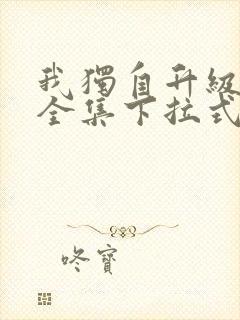 我獨自升級
全集下拉式
咚寶